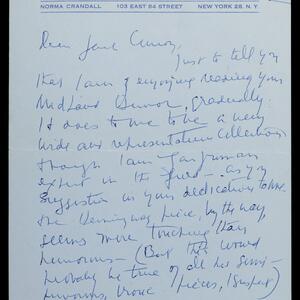 NORMA CRANDALL 103 EAST 84 STREET NEW YORK 28. N. Y.
Dear
Just to tell you
that I am enjoying reading your
Midland Humor, gradually.
It does to me to be a very
wide and representative collection
though I am far from an
expert in the field — as you
suggestion in your dedication to me.
The Hemingway piece, by the way,
seems more touching than
humorous — (But this would
probably be true of all his semi-
humorous, ironic pieces, I suspect)